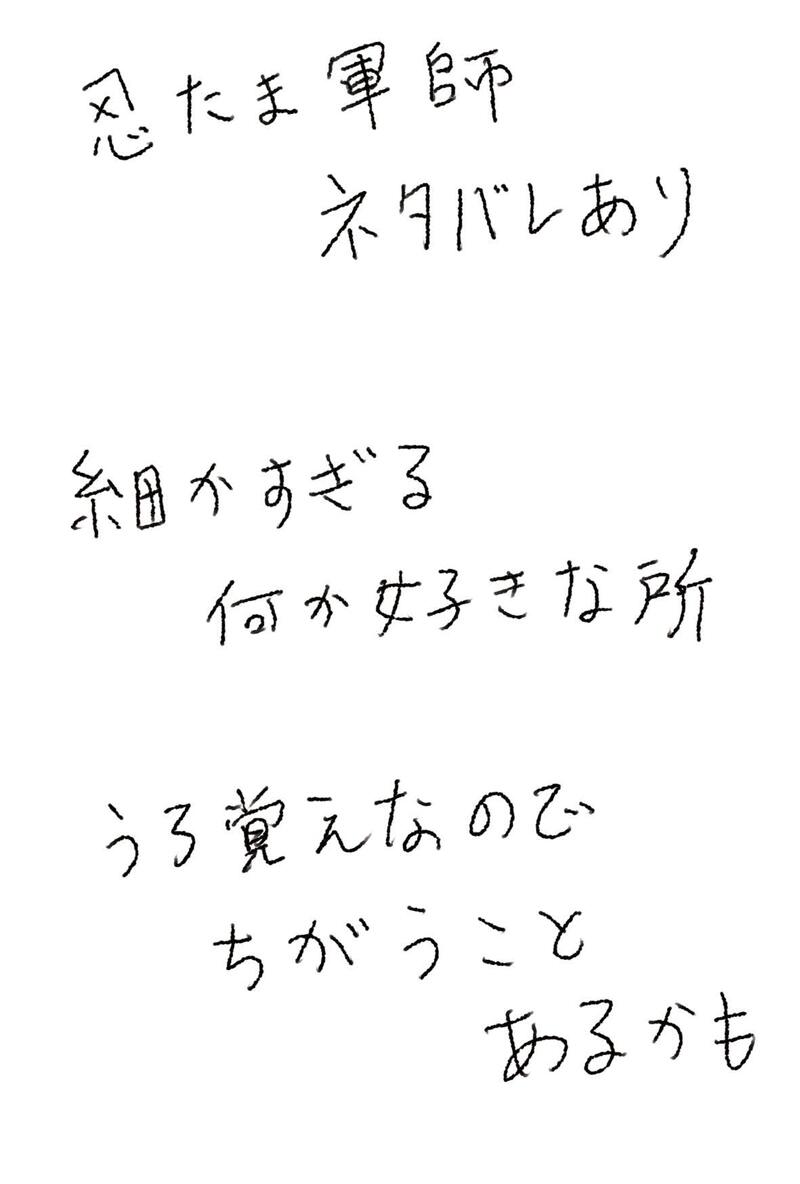 忍たま軍師
ネタバレあり
細かすぎる
何か好きな所
うろ覚えなので
ちがうこと
あるかも